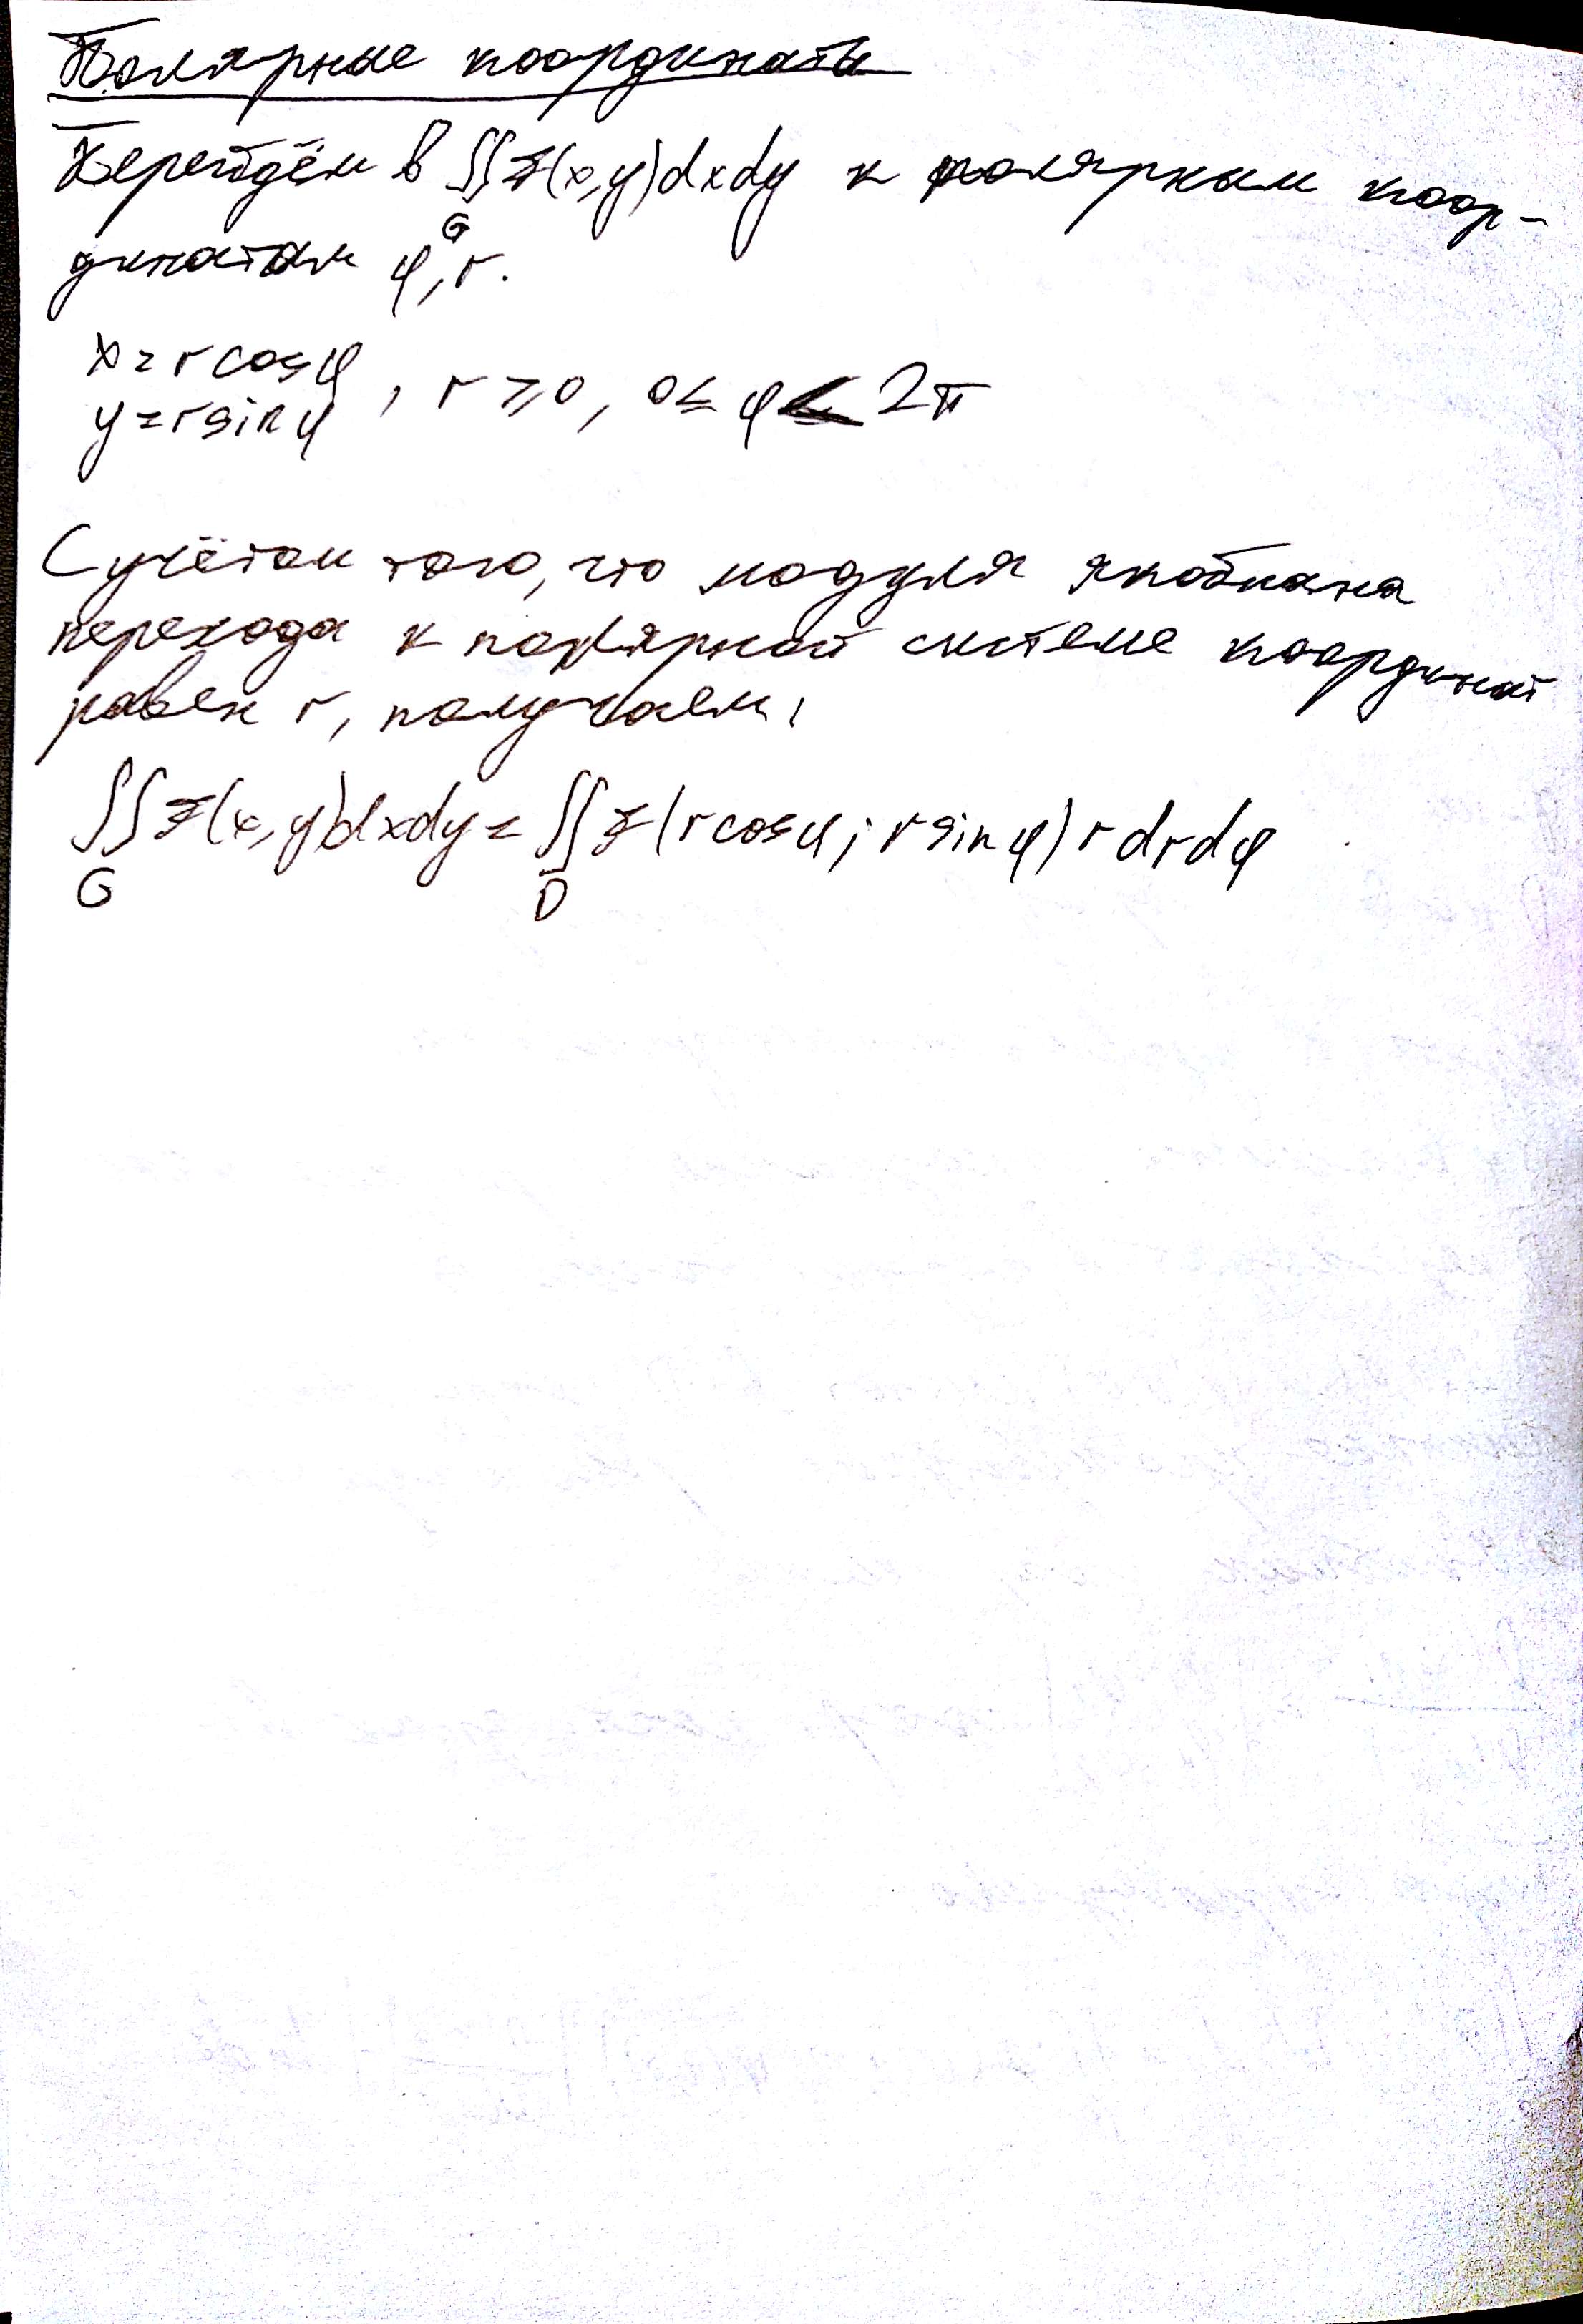 Полярные координаты
Перейдём в ∬f(x,y)dxdy к полярным коор-
G
динатам φ, r.
x = r cosφ
y = r sinφ , r ≥ 0, 0 ≤ φ < 2π
С учётом того, что модуля якобиана
перехода к полярной системе координат
равен r, получаем,
∬f(x,y)dxdy = ∬f(r cosφ; r sinφ) r dr dφ
G D